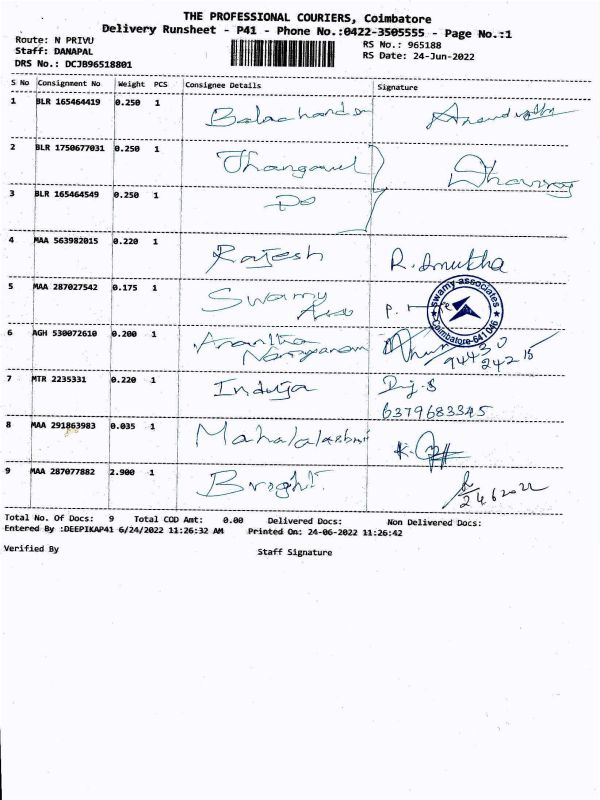 THE PROFESSIONAL COURIERS, Coimbatore
Delivery Runsheet - P41 - Phone No.:0422-3505555 - Page No.:1
Route: N PRIVU
RS No.: 965188
Staff: DANAPAL
RS Date: 24-Jun-2022
DRS No.: DCJB96518801
S No Consignment No Weight PCS Consignee Details Signature
1 BLR 165464419 0.250 1 Balachandra
2 BLR 1750677031 0.250 1 Thangavel
3 BLR 165464549 0.250 1 Do
4 MAA 563982015 0.220 1 Rajesh R. Amutha
5 MAA 287027542 0.175 1 Swamy Asso P.
swamy associates
coimbatore-641 046
6 AGH 530072610 0.200 1 Anantha Narayanan 94430 24215
7 MTR 2235331 0.220 1 Induja
6379683345
8 MAA 291863983 0.035 1 Mahalalakshmi K.
9 MAA 287077882 2.900 1 Bright 24 6 2022
Total No. Of Docs: 9 Total COD Amt: 0.00 Delivered Docs: Non Delivered Docs:
Entered By :DEEPIKAP41 6/24/2022 11:26:32 AM Printed On: 24-06-2022 11:26:42
Verified By Staff Signature